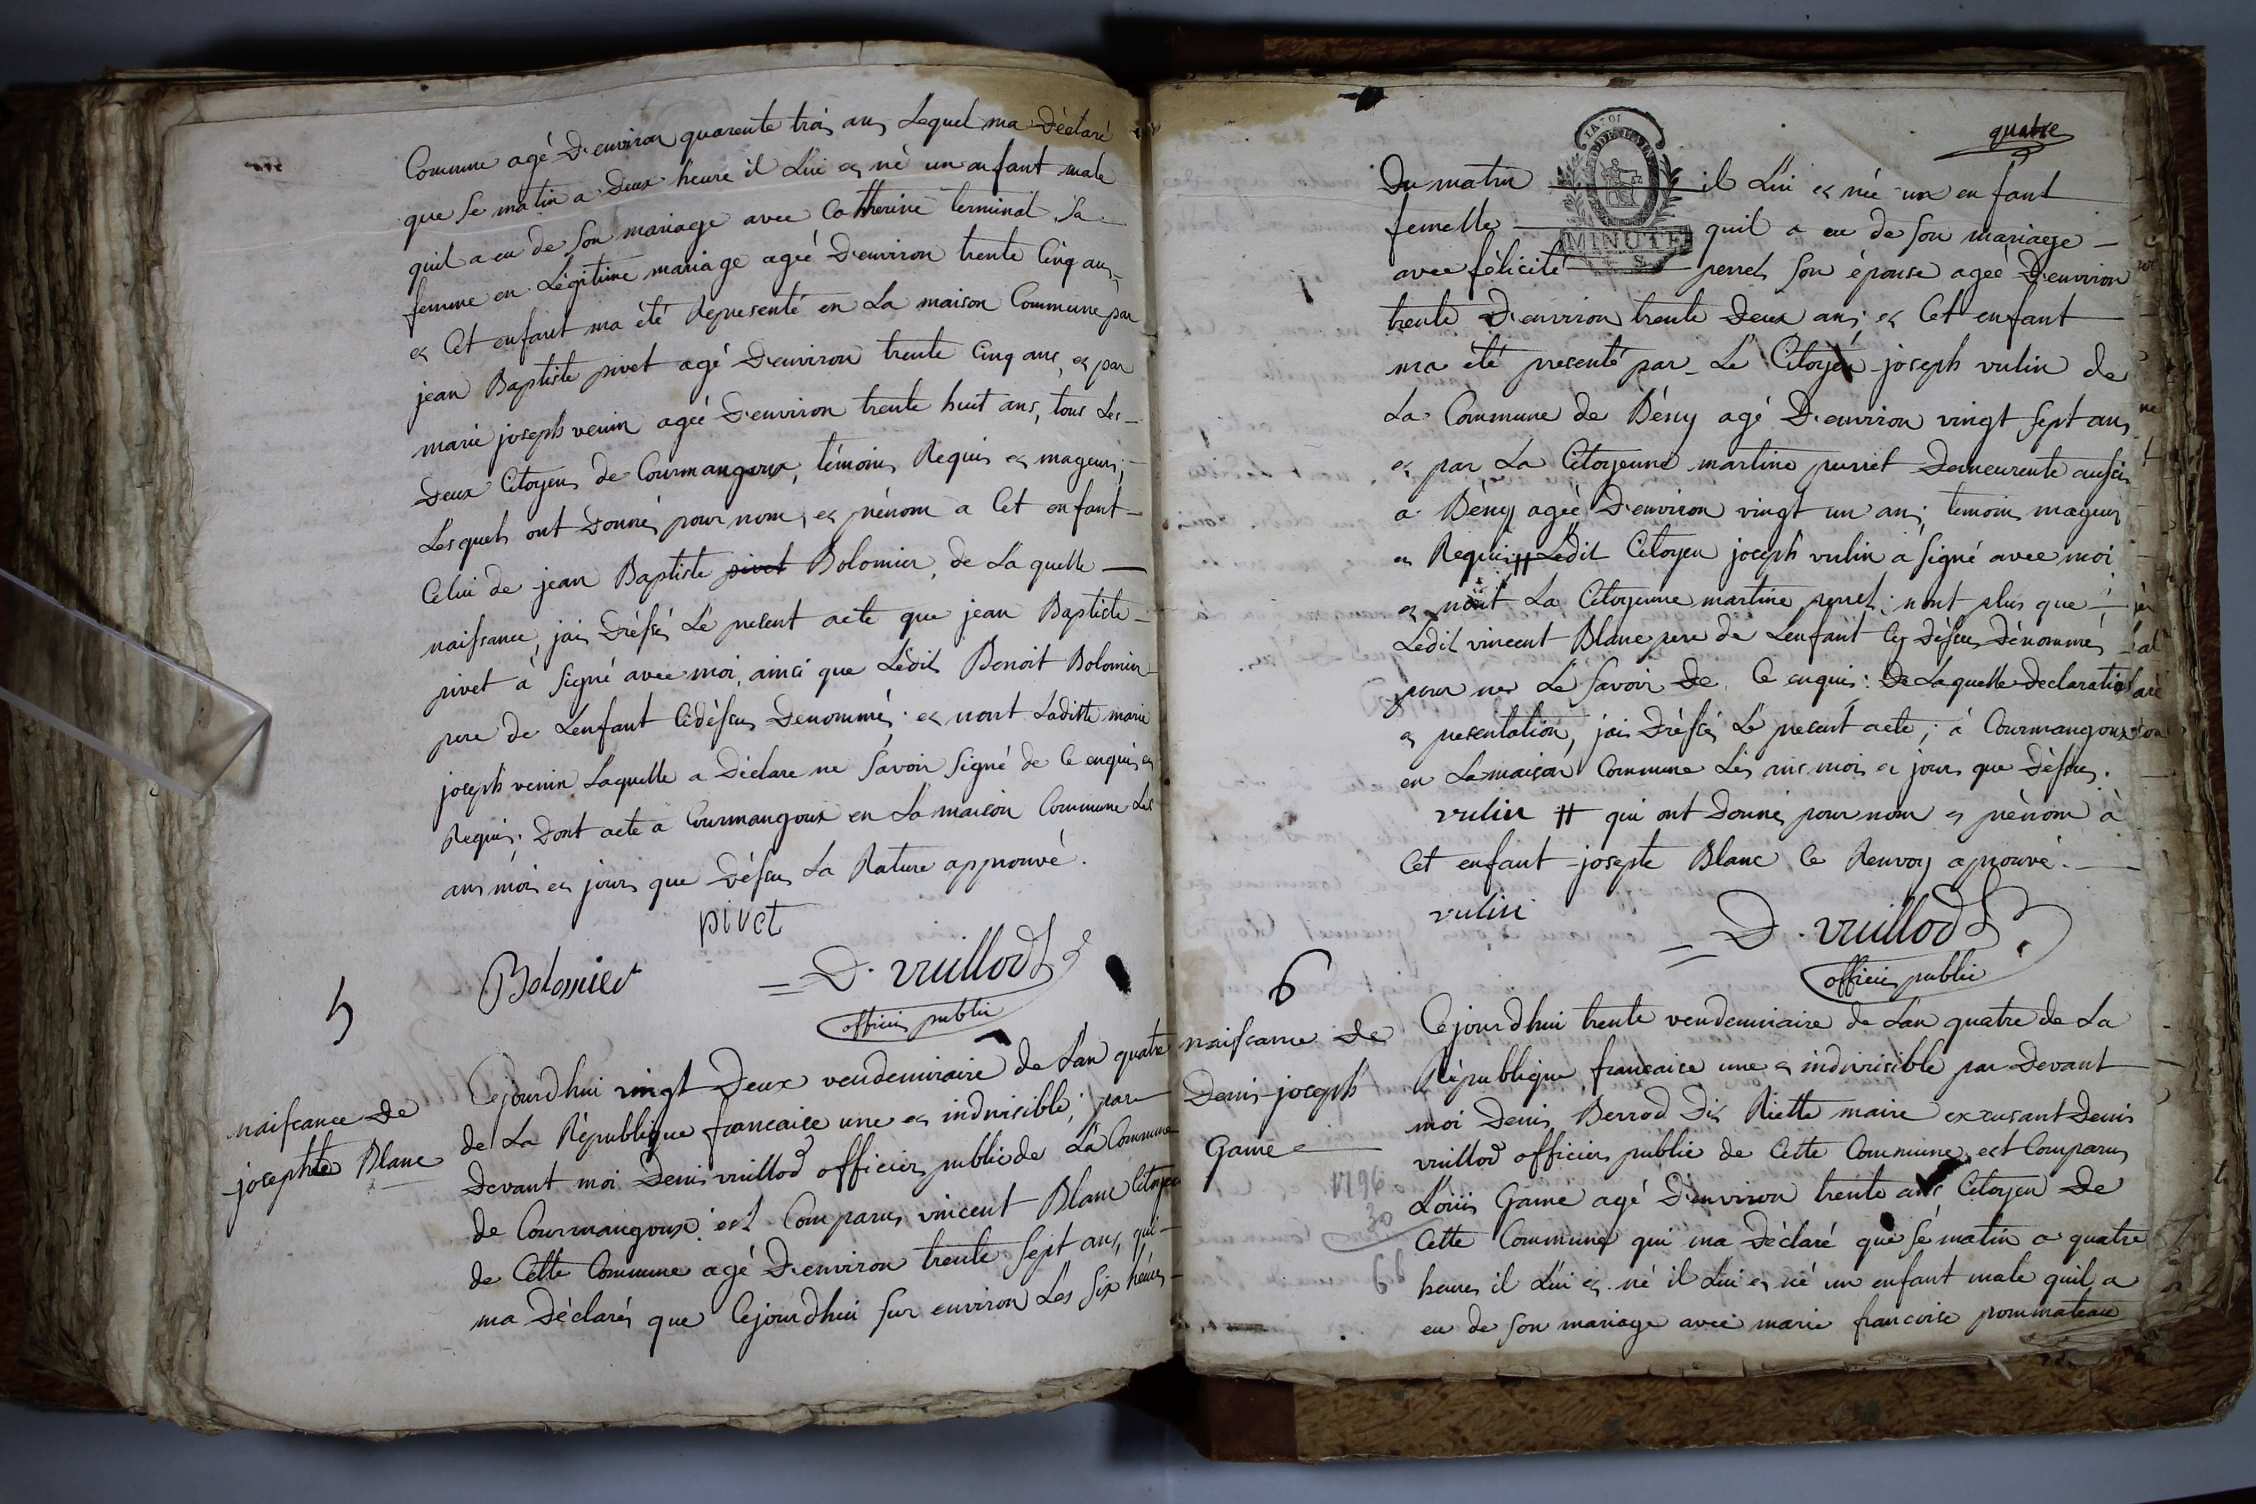 Commune agé D'environ quarente trois ans Lequel ma Déclaré
que Se matin a Deux heure il Lui es né un enfant male
quil a eu de Son mariage avec Catherine terminal Sa
femme en Légitime mariage agéé D'environ trente Cinq ans,
es Cet enfant ma été Representé en La maison Commune par
jean Baptiste pivet agé D'environ trente Cinq ans, es par
marie joseph venin agéé D'environ trente huit ans, tous Les
Deux Citoyens de Courmangoux, témoins Requis es mageurs,
Lesquels ont Donné pour nom, es prénom a Cet enfant
Celui de jean Baptiste pivet Bolomier, de Laquelle
naissance, jais Dréssés Le present acte que jean Baptiste
pivet à Signé avec moi, ainsi que Lédit Benoit Bolomier
pere de L'enfant Cidéssus Denommés; es nont Laditte marie
joseph venin Laquelle a Déclare ne Savoir Signé de Ce enquis es
Requis. Dont acte a Courmangoux en La maison Commune Les
ans mois es jours que Déssus La Rature approuvé.
pivet
Bolomier
D. vuillod
officier public
5
naissance de
josephte Blanc
Cejourdhui vingt Deux vendemiaire de L'an quatre
de La République francaise une es indivisible, par
Devant moi Denis vuillod officier public de La Commune
de Courmangoux est Comparus vincent Blanc Citoyen
de Cette Commune agé D'environ trente Sept ans, qui
ma Déclarés que Cejourdhui Sur environ Les Six heures
quatre
LA LOI
MINUTE
Du matin il Lui es née un enfant
femelle quil a eu de Son mariage
avec félicité perret Son épouse agéé D'environ
trente D'environ trente Deux ans; es Cet enfant
ma été presenté par Le Citoyen joseph vulin de
La Commune de Bény agé D'environ vingt Sept ans
es par La Citoyenne martine perret Demeurente aussi
a Bény agéé D'environ vingt un ans, temoins mageurs
es Requis # Ledit Citoyen joseph vulin a Signé avec moi
es nont La Citoyenne martine perret; nont plus que
Ledit vincent Blanc pere de Lenfant Cy Déssus Dénommés
pour ne Le Savoir De Ce enquis: De Laquelle declaration
es presentation, jais Dréssés Le present acte; à Courmangoux
en La maison Commune Lés ans mois es jours que Déssus.
vulin # qui ont Donné pour nom es prénom à
Cet enfant josepte Blanc Ce Renvoy aprouvé.
vulin
D. vuillod
officier public
6
naissance de
Denis joseph
Game
1796
30
66
Cejourdhui trente vendemiaire de L'an quatre de La
République francaise une es indivisible par Devant
moi Denis Berrod Dis Riette maire excusant Denis
vuillod officier public de Cette Commune, est Comparus
Loüis Game agé D'environ trente ans Citoyen De
Cette Commune qui ma Déclaré que Sé matin a quatre
heures il Lui es né il Lui es né un enfant male quil a
eu de Son mariage avec marie francoise pommateau